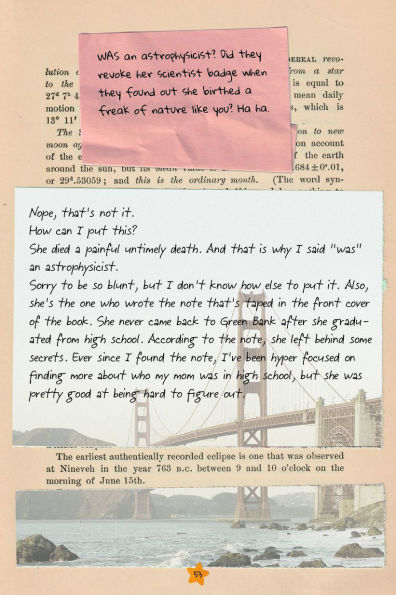 WAS an astrophysicist? Did they
revoke her scientist badge when
they found out she birthed a
freak of nature like you? Ha ha.
EREAL revo-
lution
from a star
to the
is equal to
27ᵈ 7ʰ 4
mean daily
motion
s, which is
13° 11′
The
on to new
moon
on account
of the e
f the earth
around the sun, but its mean
684±0ᵈ.01,
or 29ᵈ.53059; and this is the ordinary month. (The word syn-
Nope, that's not it.
How can I put this?
She died a painful untimely death. And that is why I said "was"
an astrophysicist.
Sorry to be so blunt, but I don't know how else to put it. Also,
she's the one who wrote the note that's taped in the front cover
of the book. She never came back to Green Bank after she gradu-
ated from high school. According to the note, she left behind some
secrets. Ever since I found the note, I've been hyper focused on
finding more about who my mom was in high school, but she was
pretty good at being hard to figure out.
The earliest authentically recorded eclipse is one that was observed
at Nineveh in the year 763 B.C. between 9 and 10 o'clock on the
morning of June 15th.
53